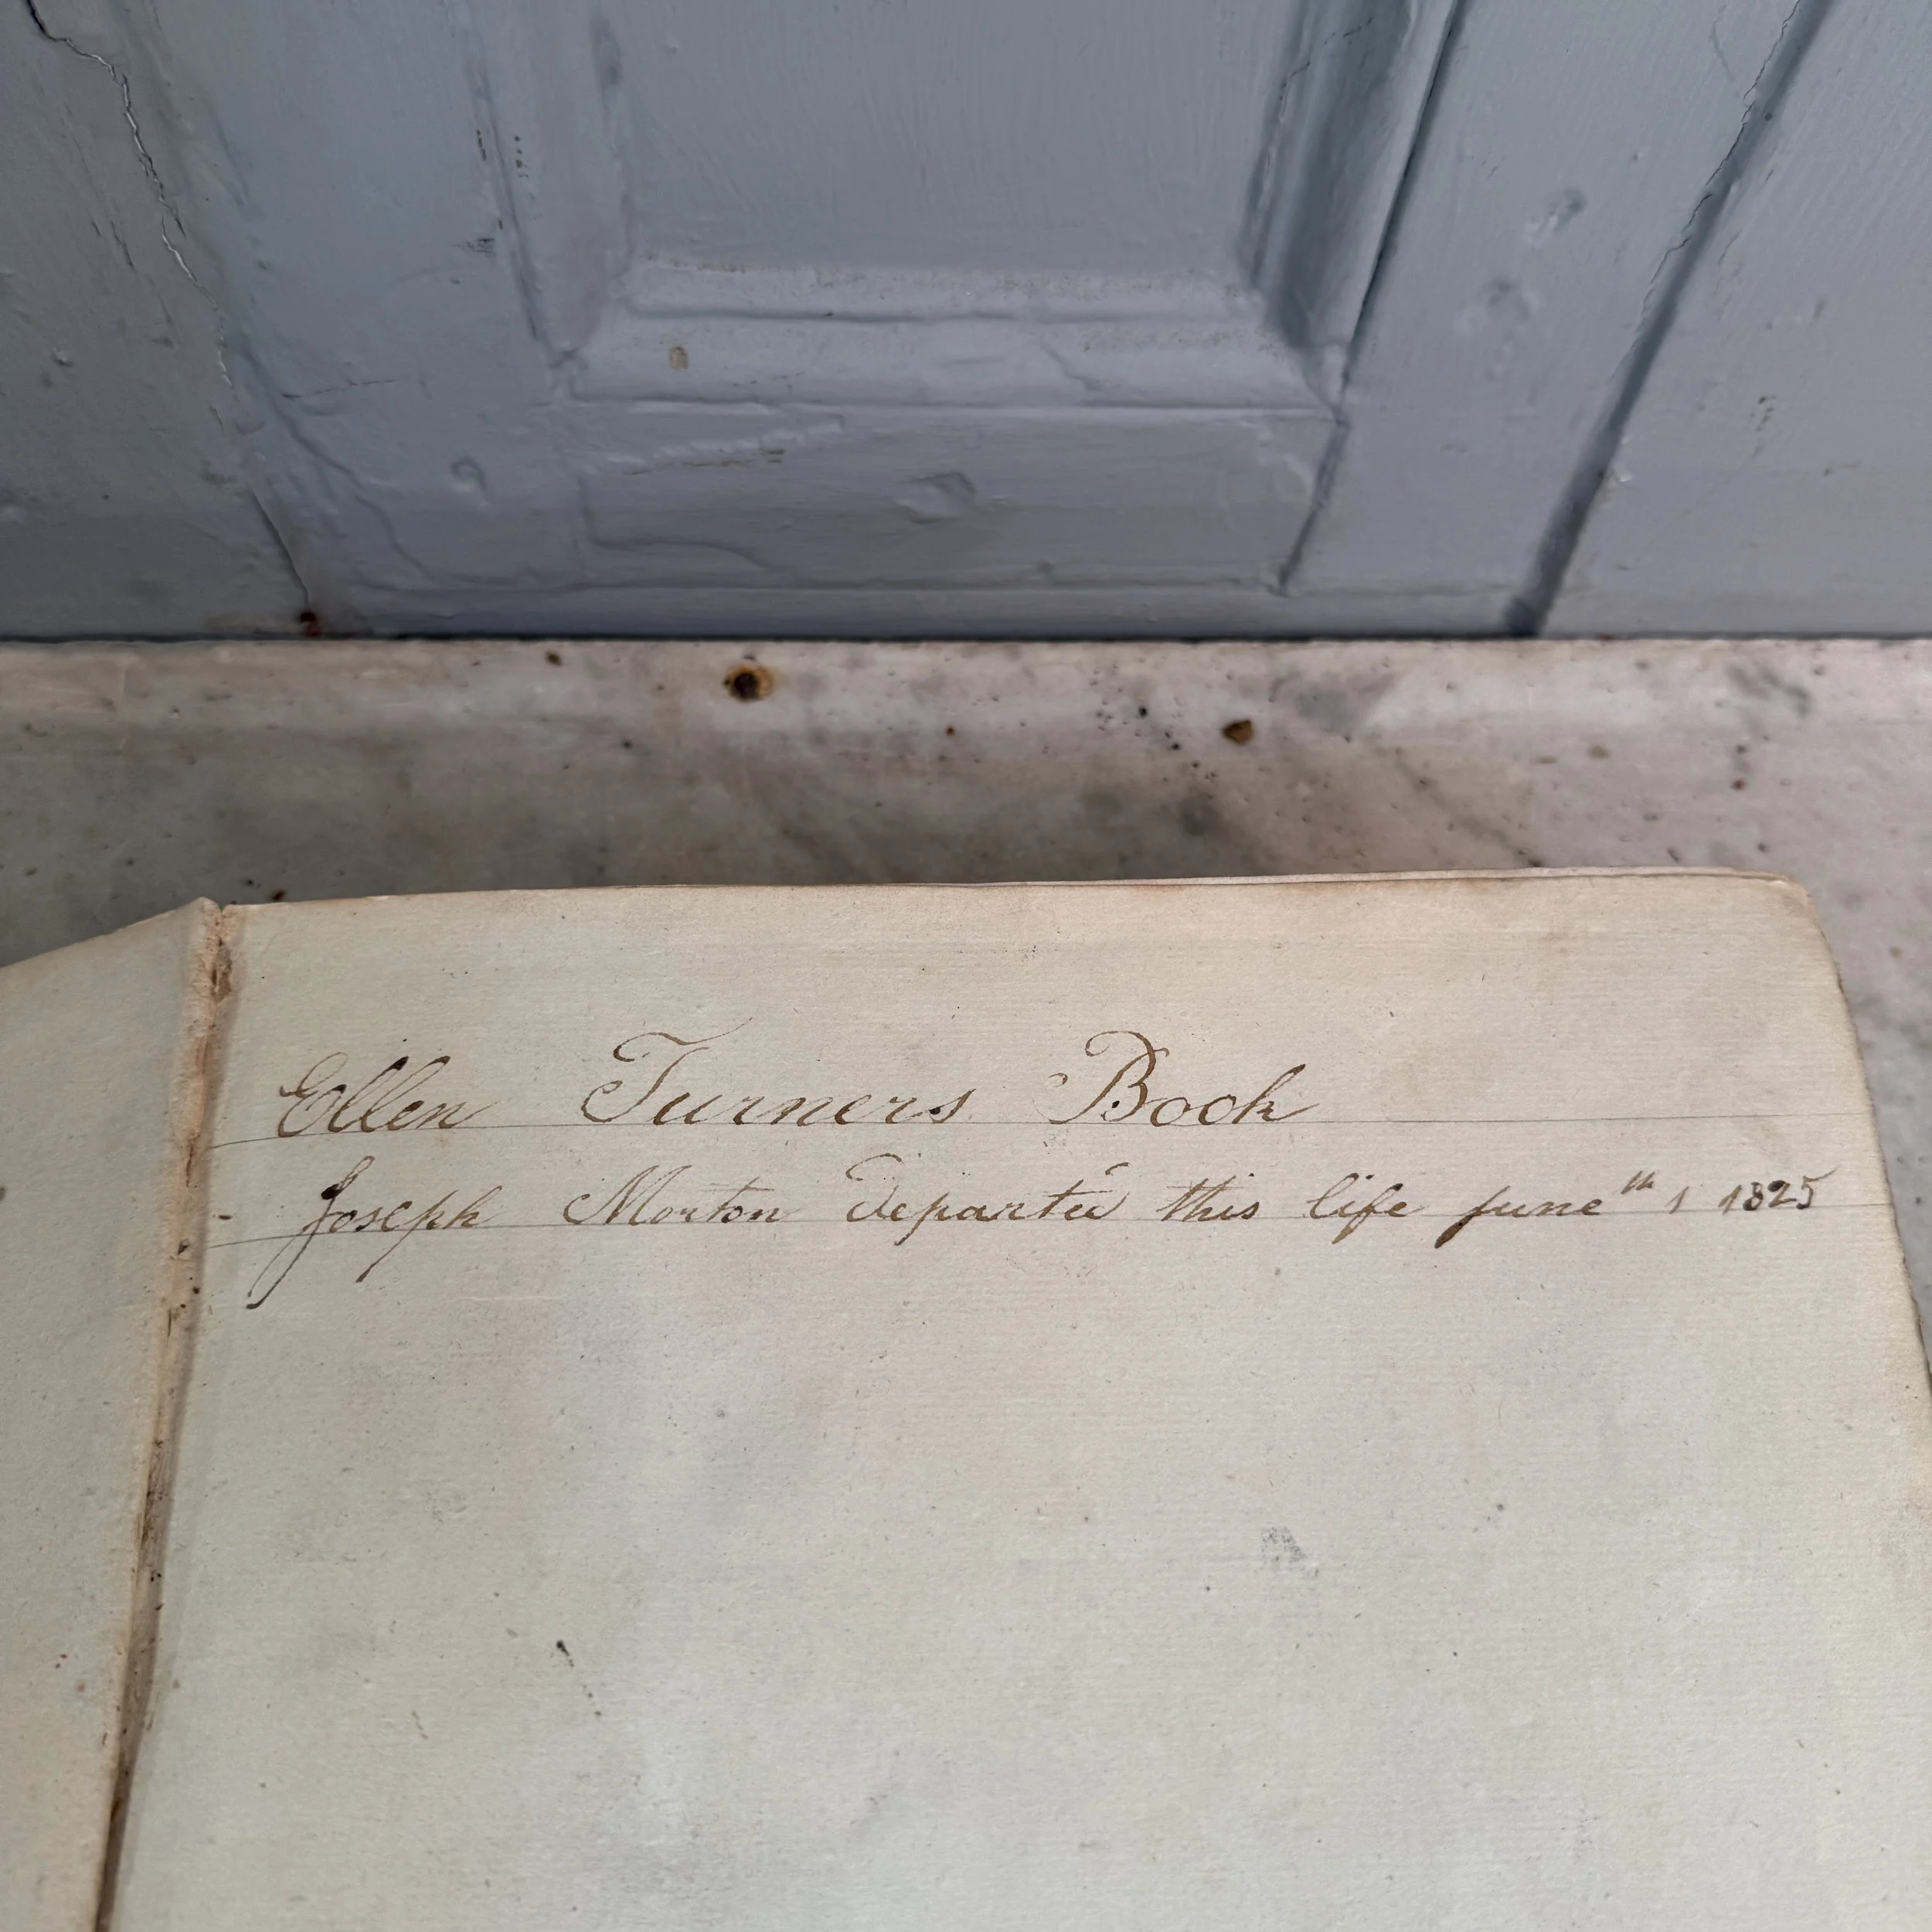 Ellen Turners Book
Joseph Morton Departed this life June th 1 1825